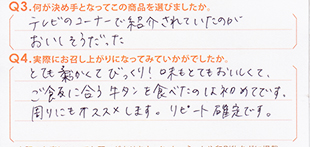 Q3.何が決め手となってこの商品を選びましたか。
テレビのコーナーで紹介されていたのが
おいしそうだった
Q4.実際にお召し上がりになってみていかがでしたか。
とても柔かくてびっくり!味もとてもおいしくて、
ご飯に合う牛タンを食べたのは初めてです。
周りにもオススメします。リピート確定です。